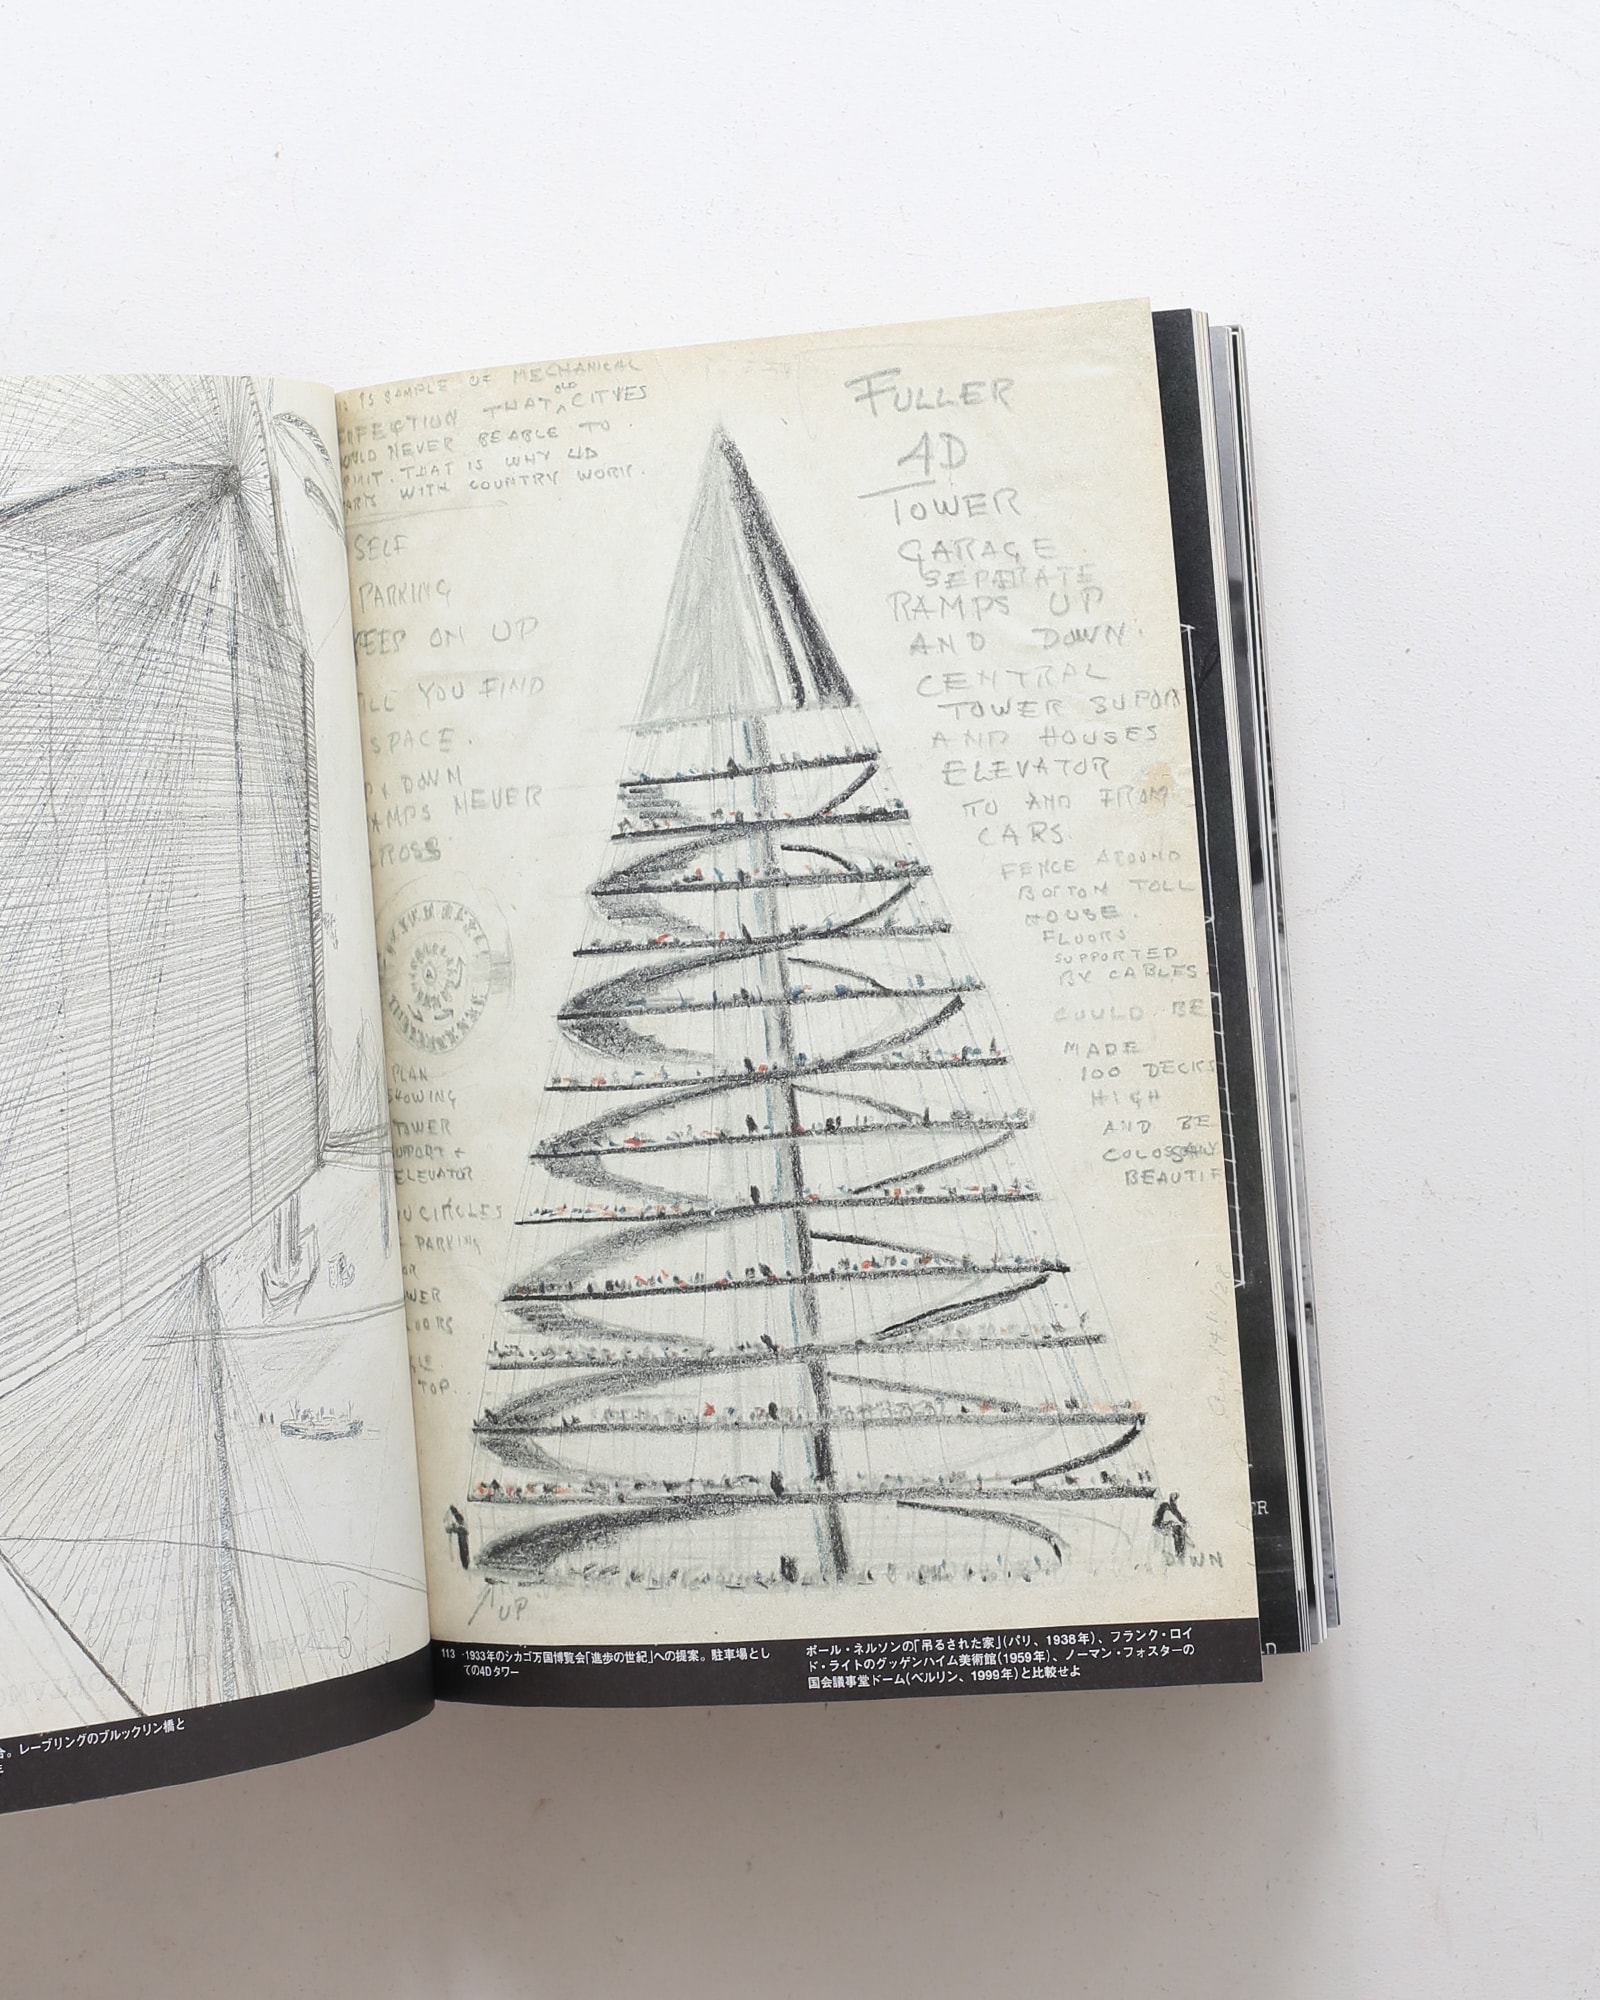 IS SAMPLE OF MECHANICAL
THAT OLD CITYES
OULD NEVER BE ABLE TO
MIT. THAT IS WHY 4D
WITH COUNTRY WORK.
SELF
PARKING
ON UP
YOU FIND
SPACE.
DOWN
AMPS NEVER
CROSS
PLAN
SHOWING
TOWER
SUPPORT +
ELEVATOR
CIRCLES
PARKING
TOP.
FULLER
4D
TOWER
GARAGE
SEPERATE
RAMPS UP
AND DOWN.
CENTRAL
TOWER SUPORT
AND HOUSES
ELEVATOR
TO AND FROM
CARS.
FENCE AROUND
BOTTOM TOLL
HOUSE.
FLOORS
SUPPORTED
BY CABLES.
COULD BE
MADE
100 DECKS
HIGH
AND BE
COLOSSALY
BEAUTIF
DOWN
UP
113 ·1933年のシカゴ万国博覧会「進歩の世紀」への提案。駐車場とし
ての4Dタワー
ポール・ネルソンの「吊るされた家」(パリ、1938年)、フランク・ロイ
ド・ライトのグッゲンハイム美術館(1959年)、ノーマン・フォスターの
国会議事堂ドーム(ベルリン、1999年)と比較せよ
。レーブリングのブルックリン橋と
ER